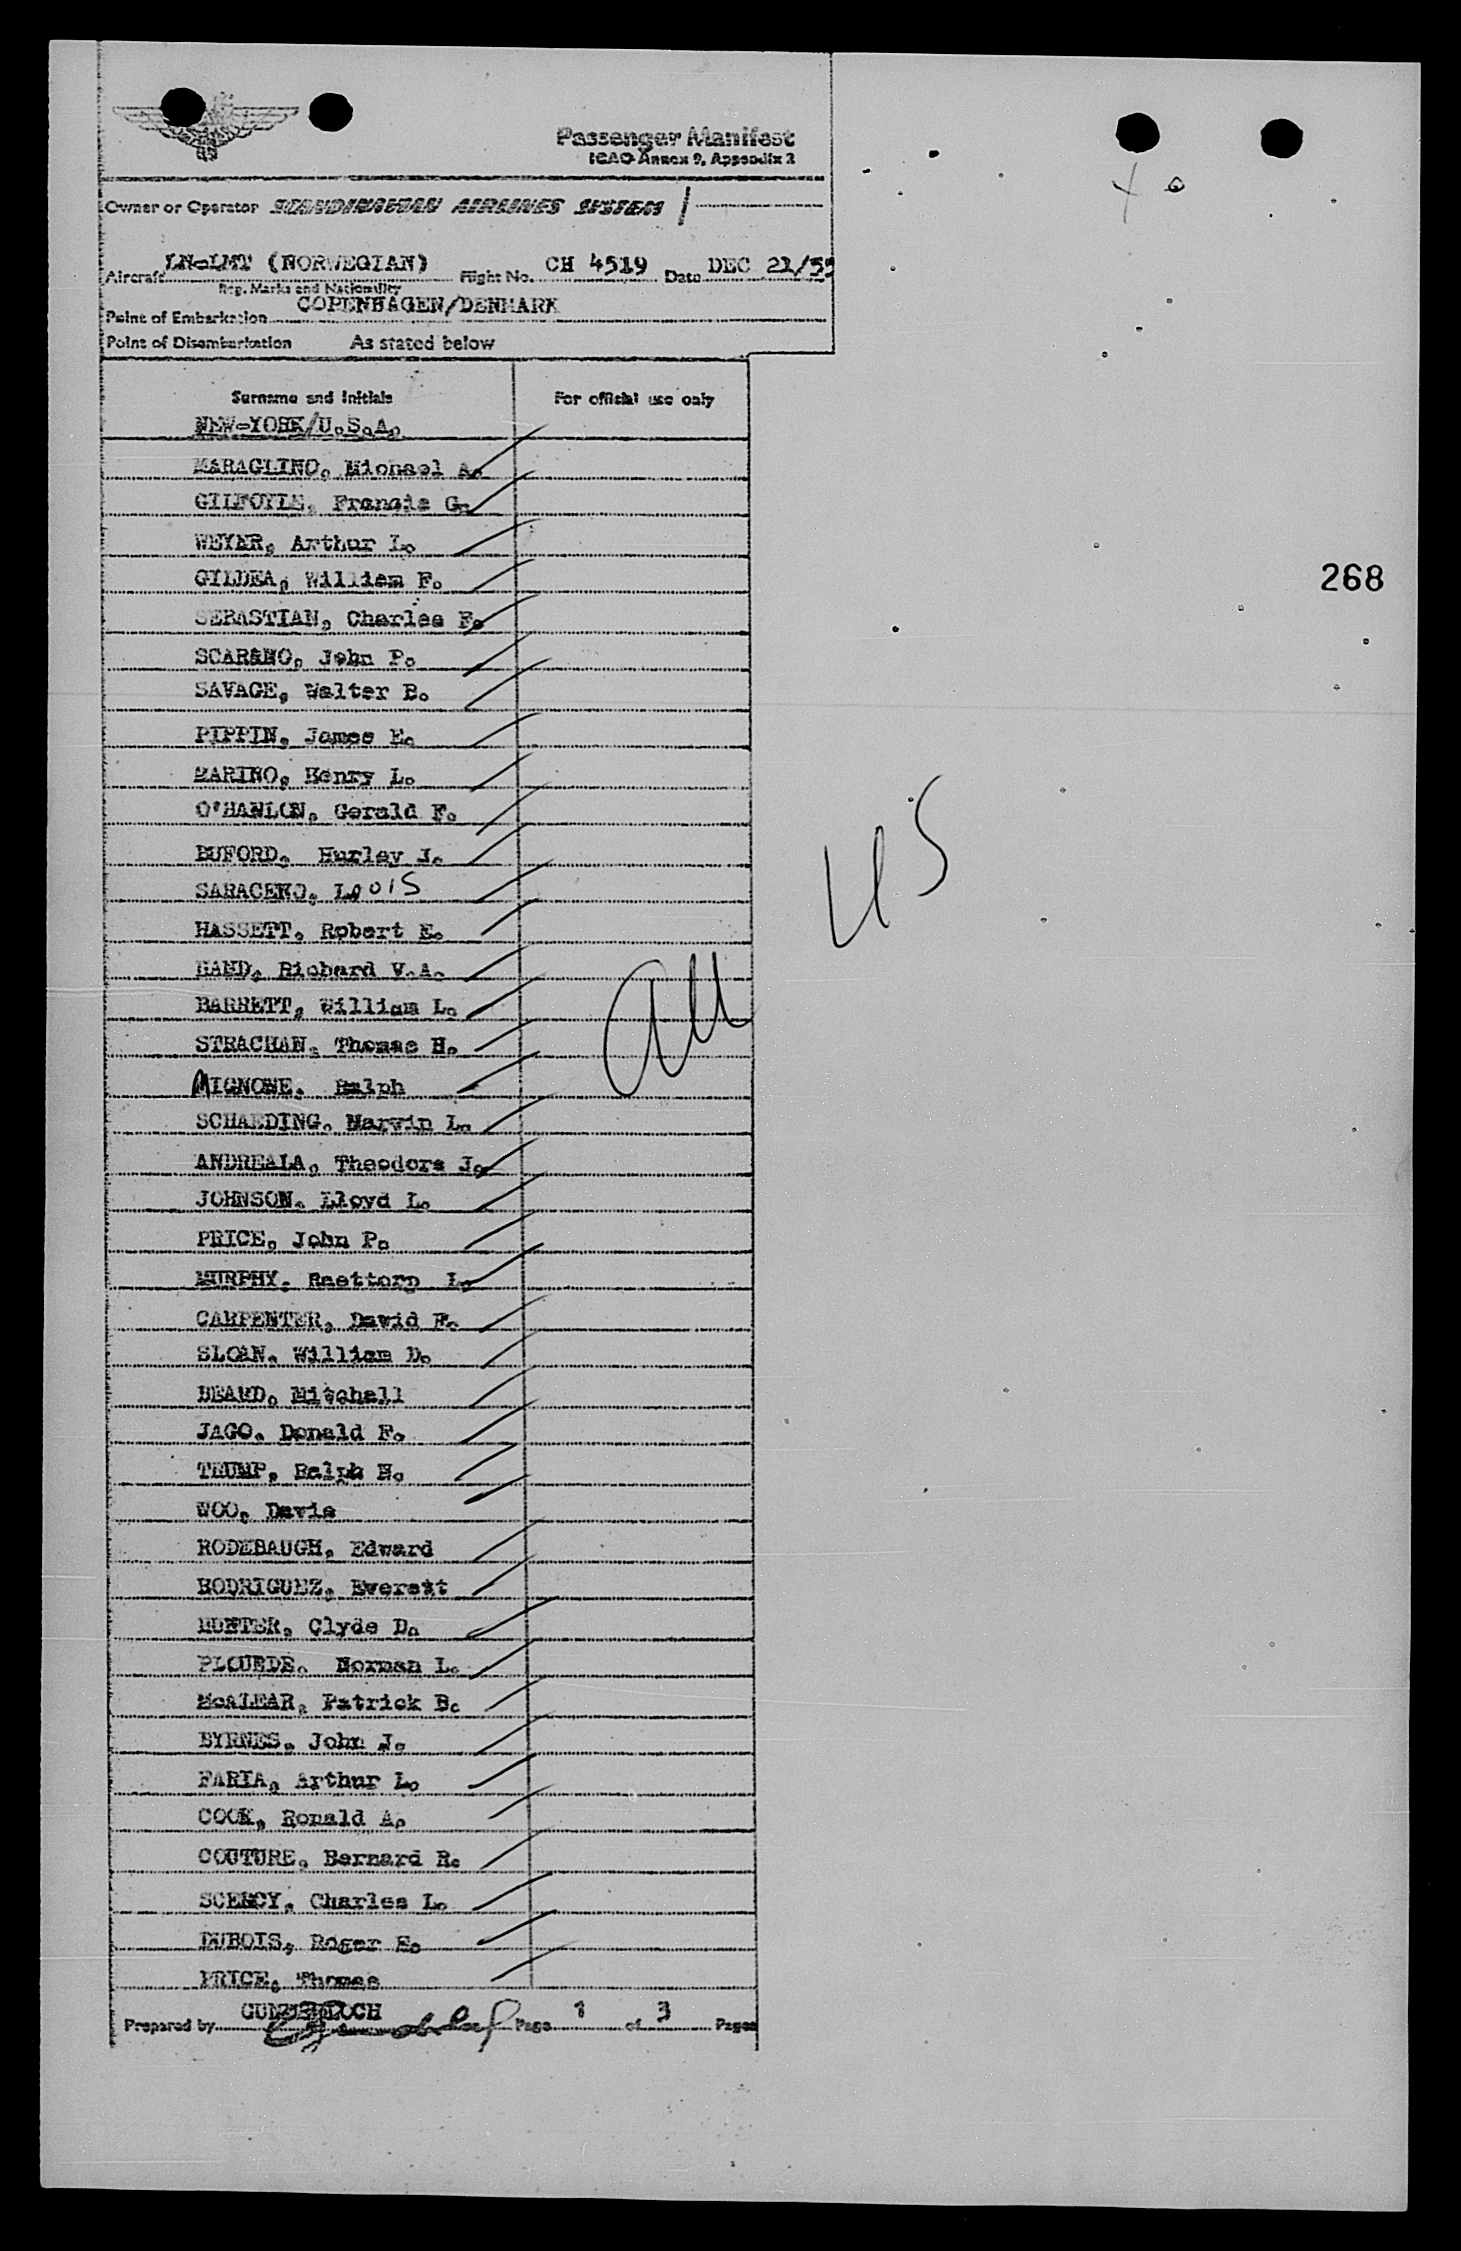 Passenger Manifest
ICAO Annex 9, Appendix 2
Owner or Operator SCANDINAVIAN AIRLINES SYSTEM
Aircraft LN-LMT (NORWEGIAN) Flight No. CH 4519 Date DEC 21/55
Reg. Marks and Nationality
Point of Embarkation COPENHAGEN/DENMARK
Point of Disembarkation As stated below
Surname and Initials For official use only
NEW-YORK/U.S.A.
MARAGLINO, Michael A.
GILFOYLE, Francis G.
WEYER, Arthur L.
GILDEA, William F.
268
SEBASTIAN, Charles F.
SCARANO, John P.
SAVAGE, Walter B.
PIPPIN, James E.
MARINO, Henry L.
O'HANLON, Gerald F.
BUFORD, Hurley J.
SARACENO, Louis
US
HASSETT, Robert E.
HAND, Richard V.A.
BARRETT, William L.
all
STRACHAN, Thomas H.
MIGNONE, Ralph
SCHAEDING, Marvin L.
ANDREALA, Theodore J.
JOHNSON, Lloyd L.
PRICE, John P.
MURPHY, Raettorp L.
CARPENTER, David F.
SLOAN, William D.
BEARD, Mitchell
JAGO, Donald F.
TRUMP, Ralph H.
WOO, Davis
RODEBAUGH, Edward
RODRIGUEZ, Everett
HUNTER, Clyde D.
PLOURDE, Norman L.
McALEAR, Patrick B.
BYRNES, John J.
FARIA, Arthur L.
COOK, Ronald A.
COUTURE, Bernard R.
SCENCY, Charles L.
DUBOIS, Roger E.
PRICE, Thomas
Prepared by Page 1 of 3 Pages